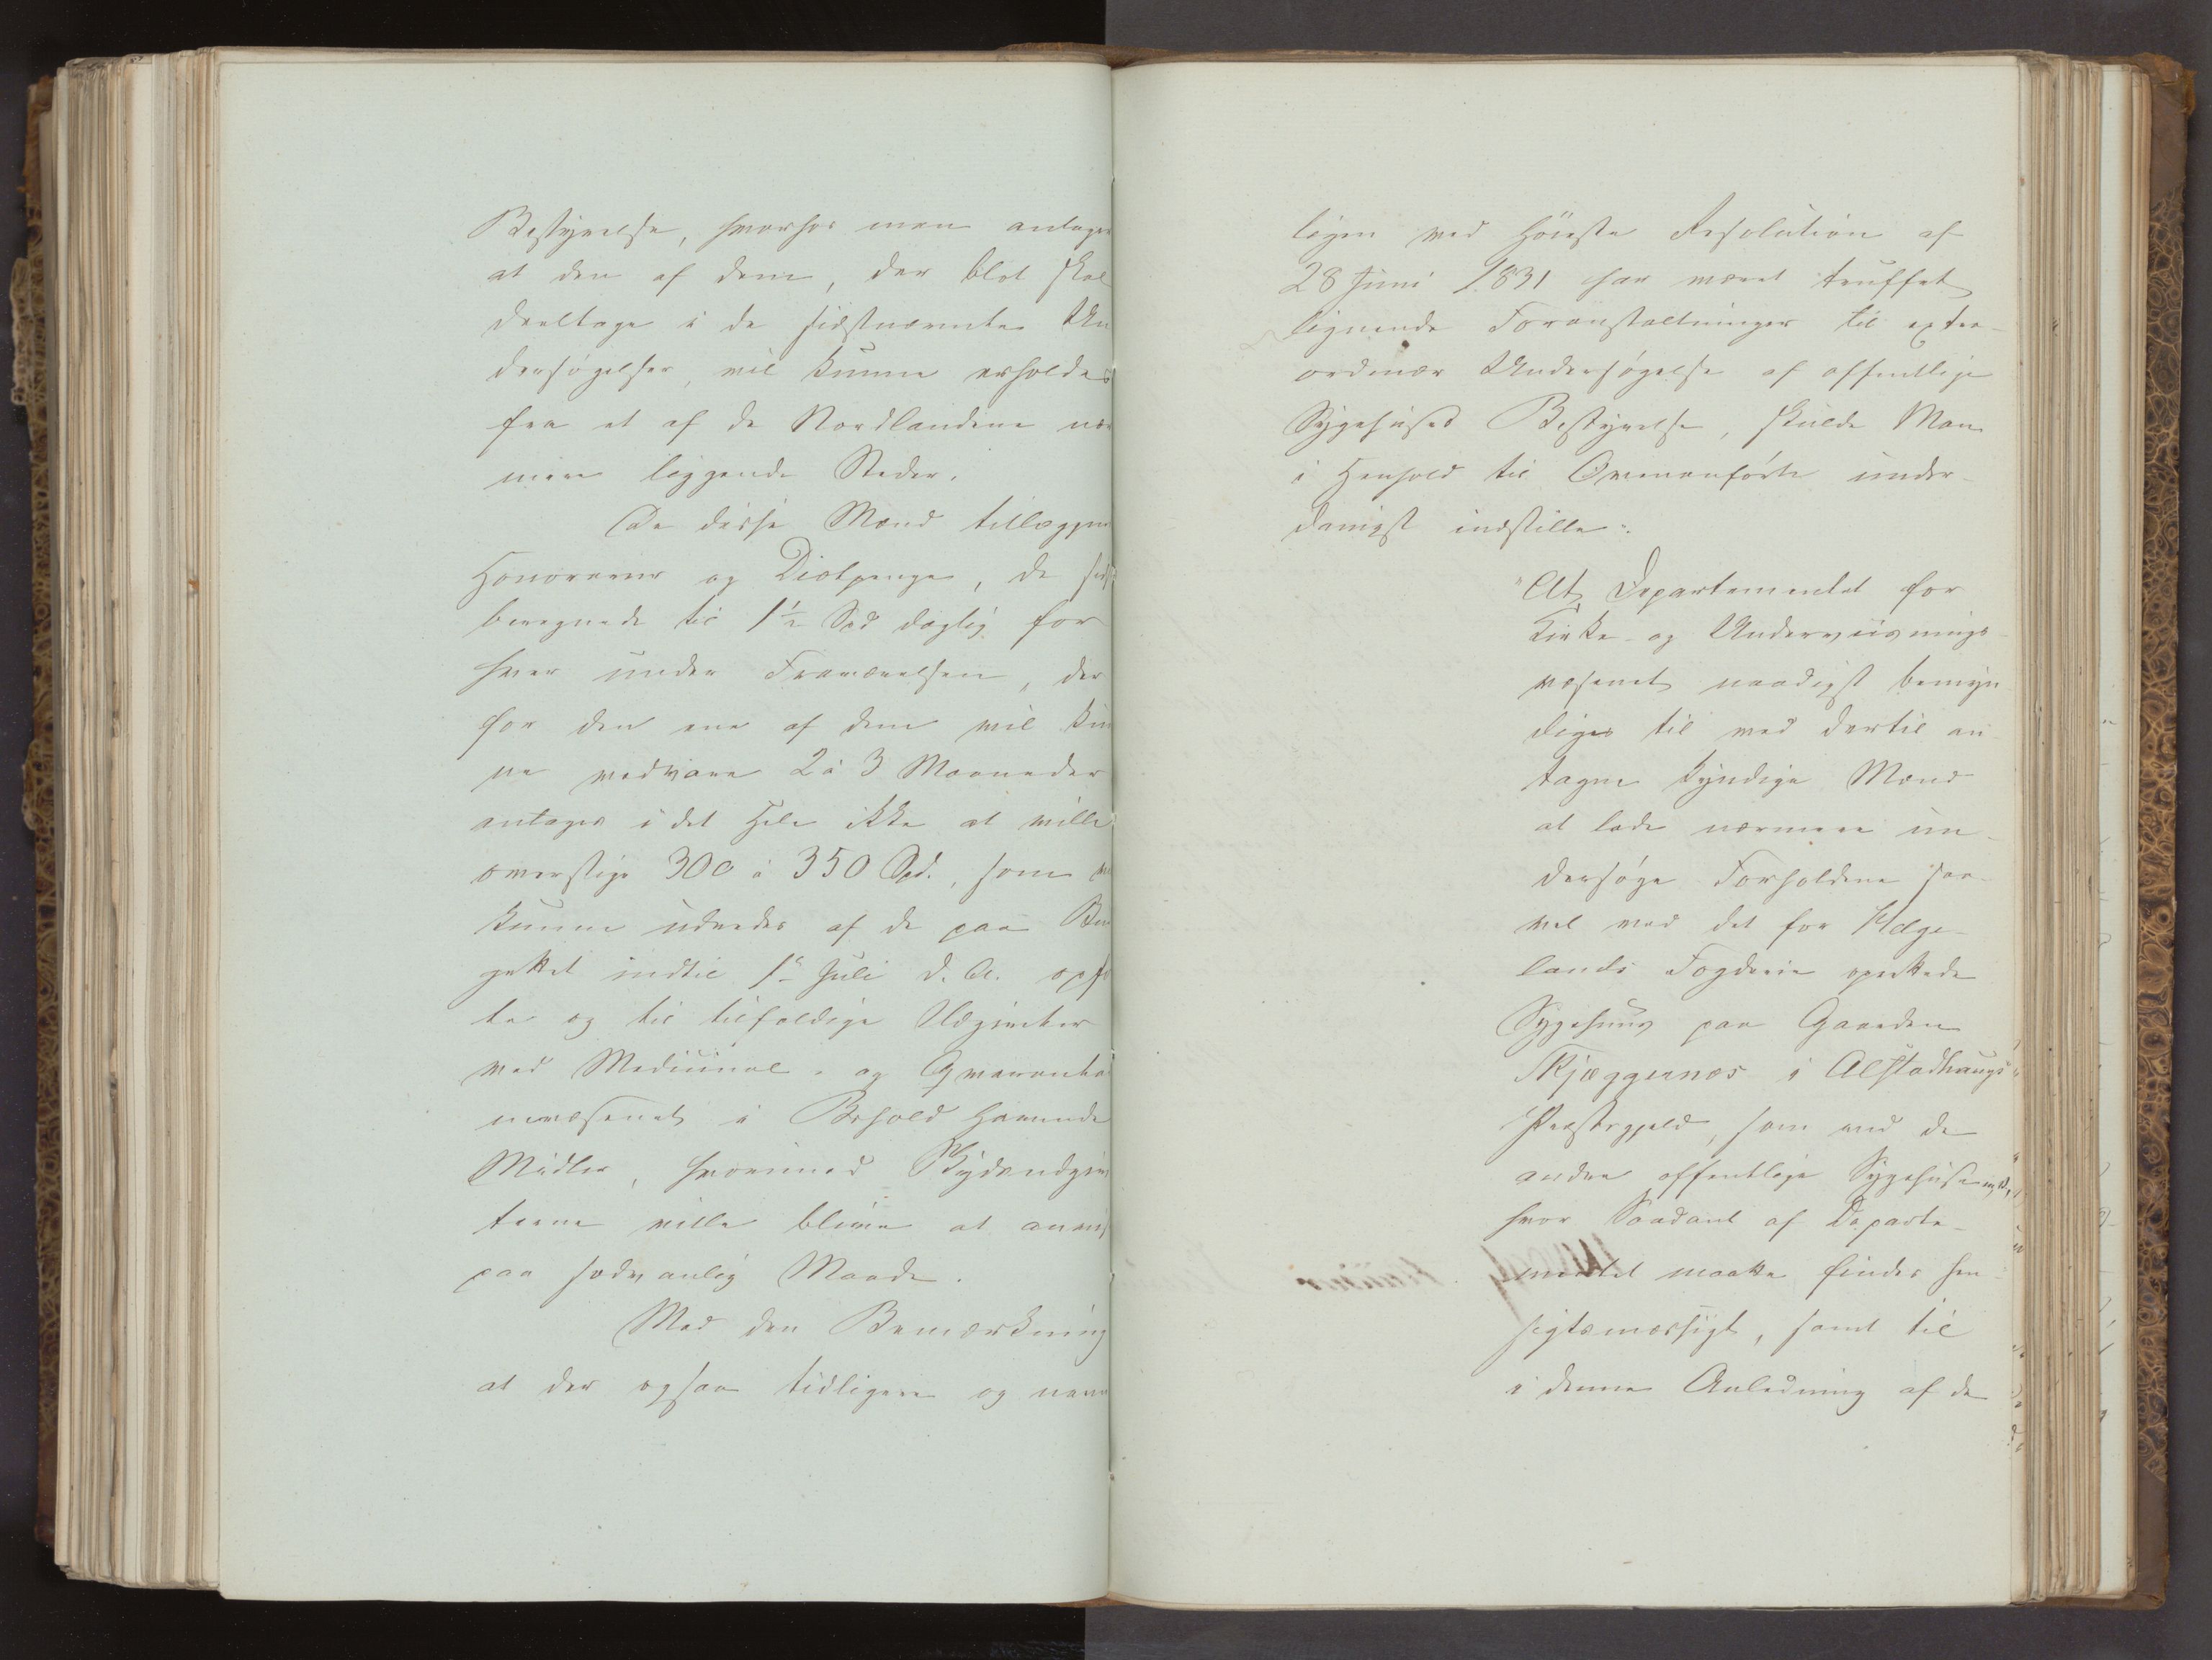 Bestyrelse, hvorhos man antager
at den af dem, der blot skal
deeltage i de sidstnævnte Un
dersøgelser, vil kunne erholdes
fra et af de Nordlandene nær
mere liggende Steder.
De disse Mænd tillæggende
Honorarer og Diætpenge, de sidste
beregnede til 1½ Spd daglig for
hver under Fraværelsen, der
for den ene af dem vil kun
ne medvare 2 à 3 Maaneder
antages i det Hele ikke at ville
overstige 300 à 350 Spd., som
kunne udredes af de paa Bud
gettet indtil 1ste Juli d. A. opfør
te og til tilfældige Udgivter
ved Medicinal- og Qvarantai
nevæsenet i Behold havende
Midler, hvorimod Skydsudgiv
terne ville blive at anvise
paa sædvanlig Maade.
Med den Bemærkning
at der ogsaa tidligere og navn
ligen ved Høieste Resolution af
28 Juni 1831 har været truffet
lignende Foranstaltninger til extra-
ordinær Undersøgelse af offentlige
Sygehuses Bestyrelse, skulde Man
i Henhold til Ovenanførte under-
danigst indstille:
"At Departementet for
Kirke- og Underviisnings-
væsenet naadigst bemyn
diges til ved dertil an
tagne kyndige Mænd
at lade nærmere un-
dersøge Forholdene saa-
vel ved det for Helge-
lands Fogderie oprettede
Sygehuus paa Gaarden
Skjæggernæs i Alstadhaugs
Præstegjeld, som ved de
andre offentlige Sygehuse
hvor Saadant af Departe-
mentet maatte findes hen
sigtsmæssigt, samt til
i denne Anledning af de